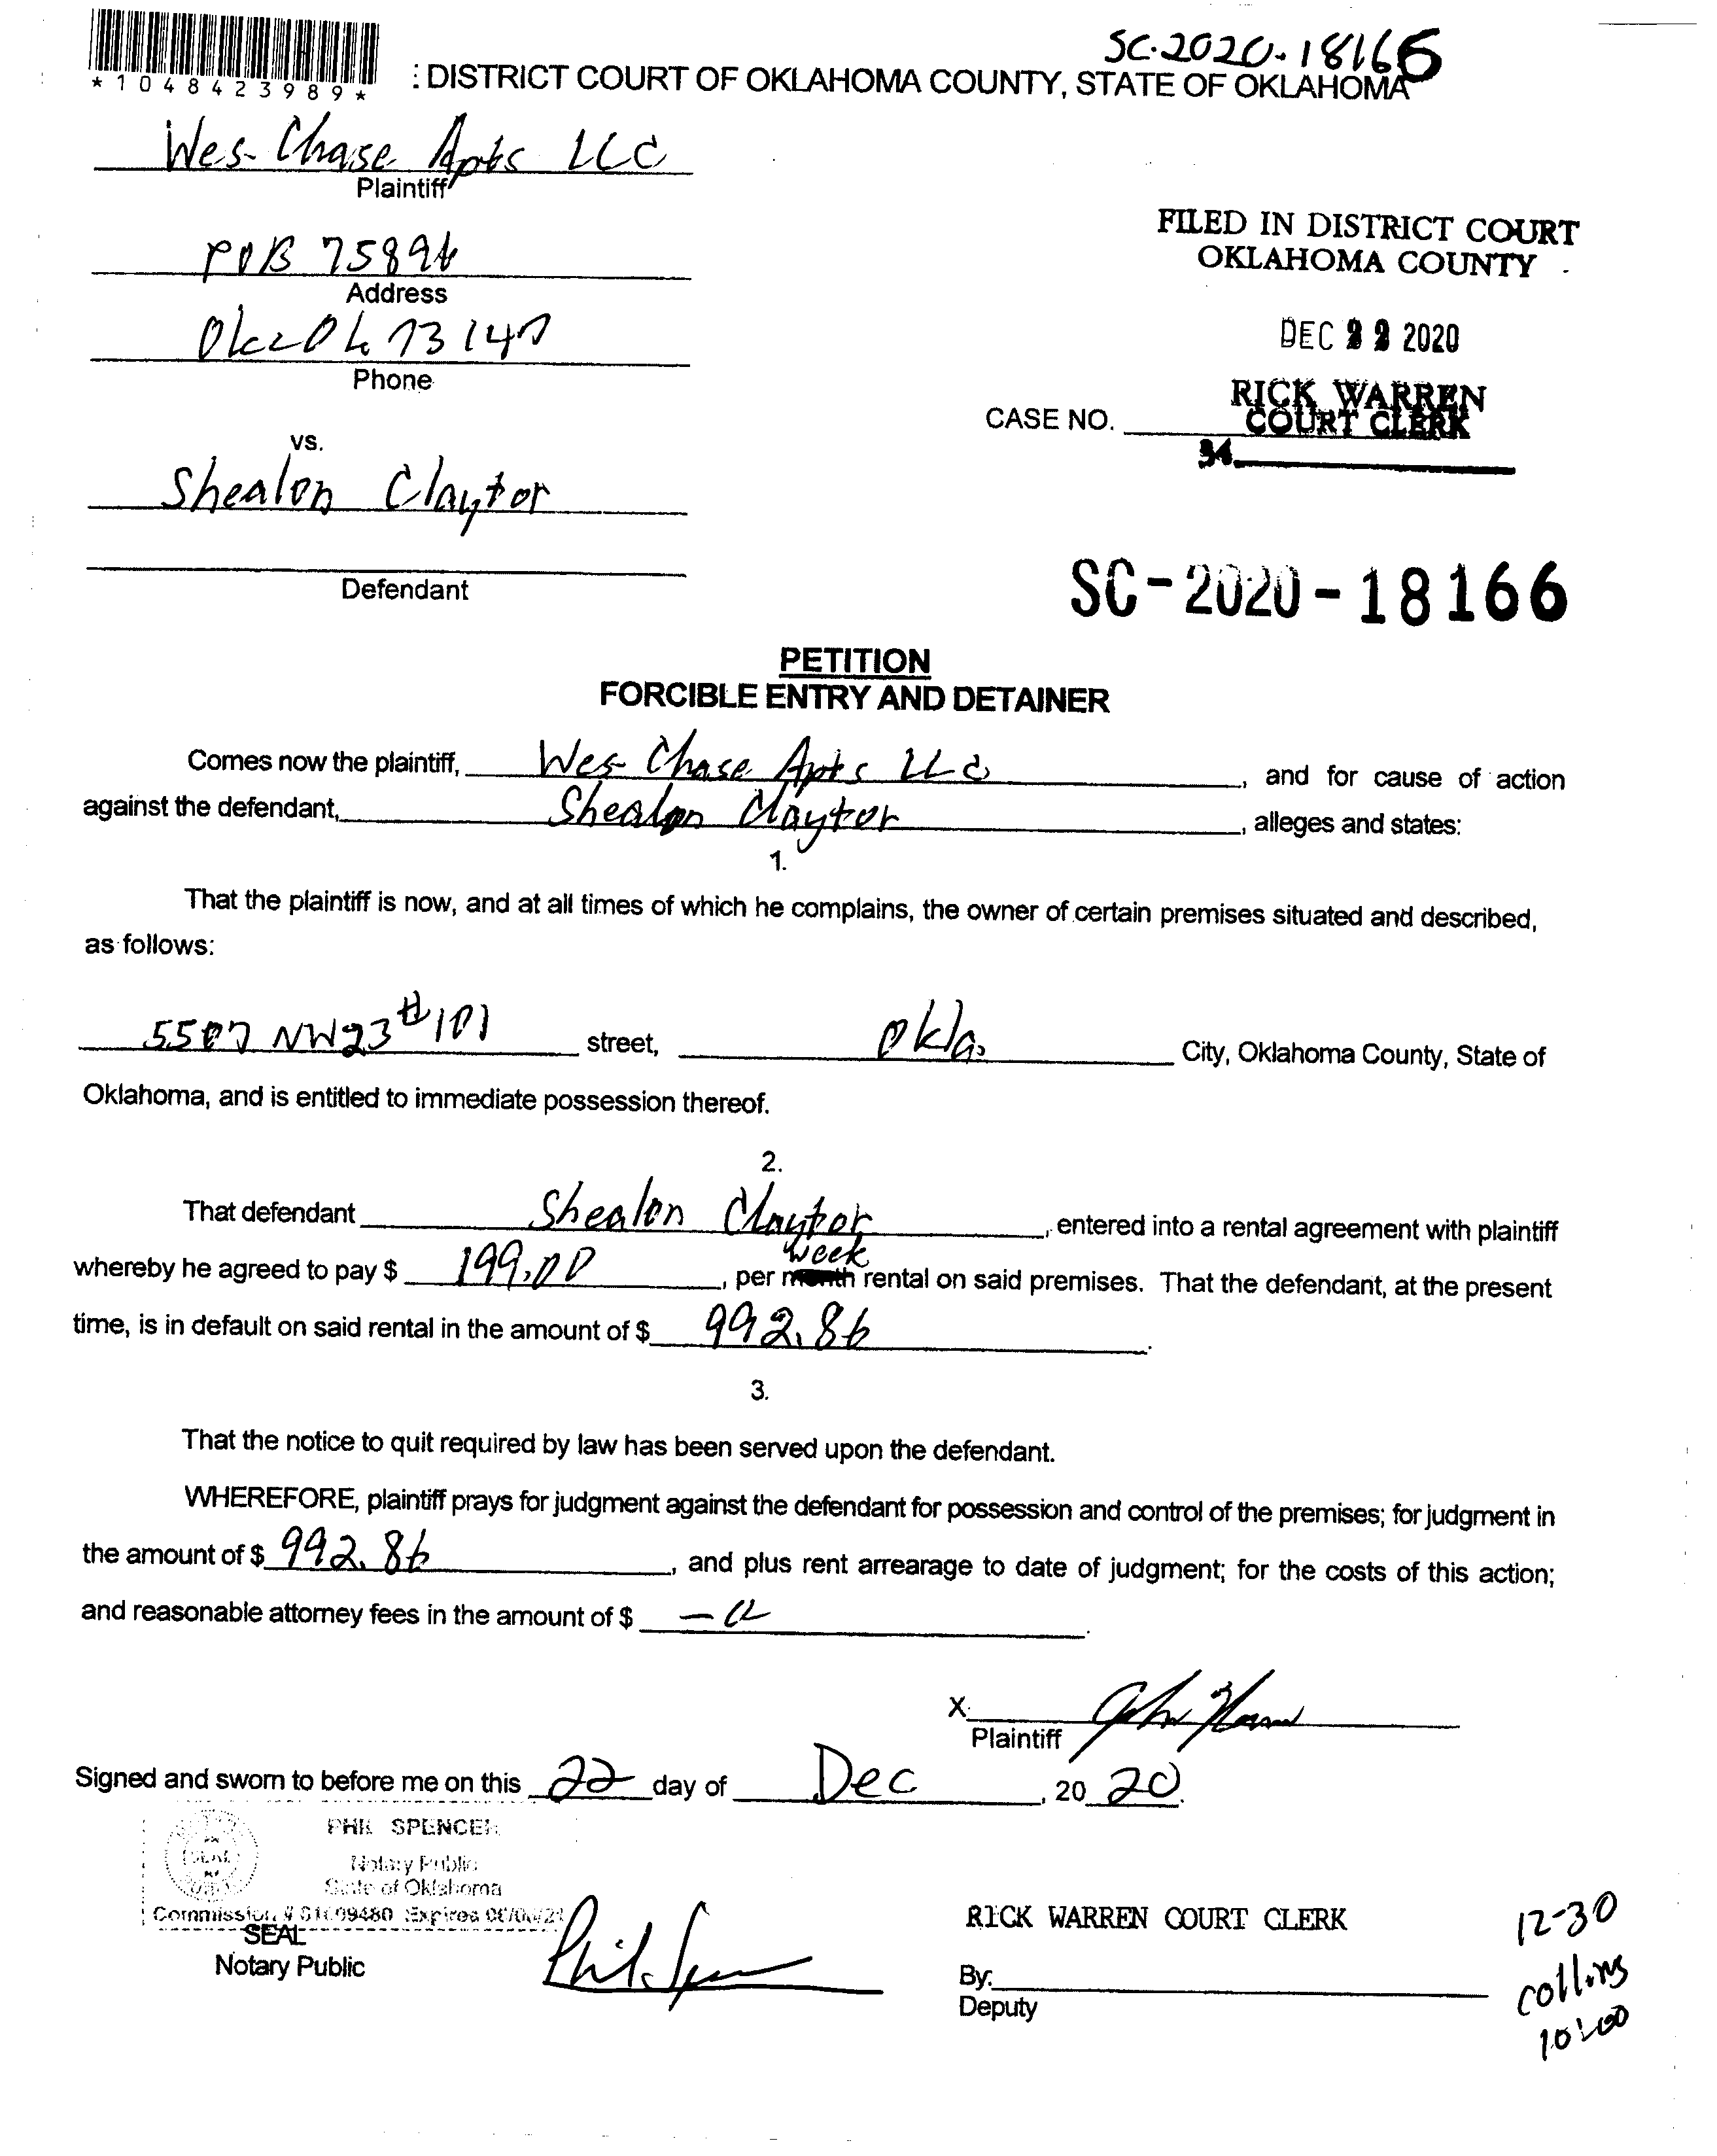 SC-2020-18166
*1048423989*
: DISTRICT COURT OF OKLAHOMA COUNTY, STATE OF OKLAHOMA
Wes-Chase Apts LLC
Plaintiff
POB 75896
Address
Okc Ok 73147
Phone
FILED IN DISTRICT COURT
OKLAHOMA COUNTY
DEC 22 2020
RICK WARREN
COURT CLERK
CASE NO.
34
vs.
Shealon Claytor
Defendant
SC-2020-18166
PETITION
FORCIBLE ENTRY AND DETAINER
Comes now the plaintiff, Wes-Chase Apts LLC, and for cause of action
against the defendant, Shealon Claytor, alleges and states:
1.
That the plaintiff is now, and at all times of which he complains, the owner of certain premises situated and described,
as follows:
5507 NW23 #101 street, Okla. City, Oklahoma County, State of
Oklahoma, and is entitled to immediate possession thereof.
2.
That defendant Shealon Claytor, entered into a rental agreement with plaintiff
week
whereby he agreed to pay $ 199.00, per month rental on said premises. That the defendant, at the present
time, is in default on said rental in the amount of $ 992.86.
3.
That the notice to quit required by law has been served upon the defendant.
WHEREFORE, plaintiff prays for judgment against the defendant for possession and control of the premises; for judgment in
the amount of $ 992.86, and plus rent arrearage to date of judgment; for the costs of this action;
and reasonable attorney fees in the amount of $
X
Plaintiff
Signed and sworn to before me on this 22 day of Dec, 20 20.
PHIL SPENCER
Notary Public
State of Oklahoma
Commission #
SEAL
Notary Public
RICK WARREN COURT CLERK
By:
Deputy
12-30
collins
10:00